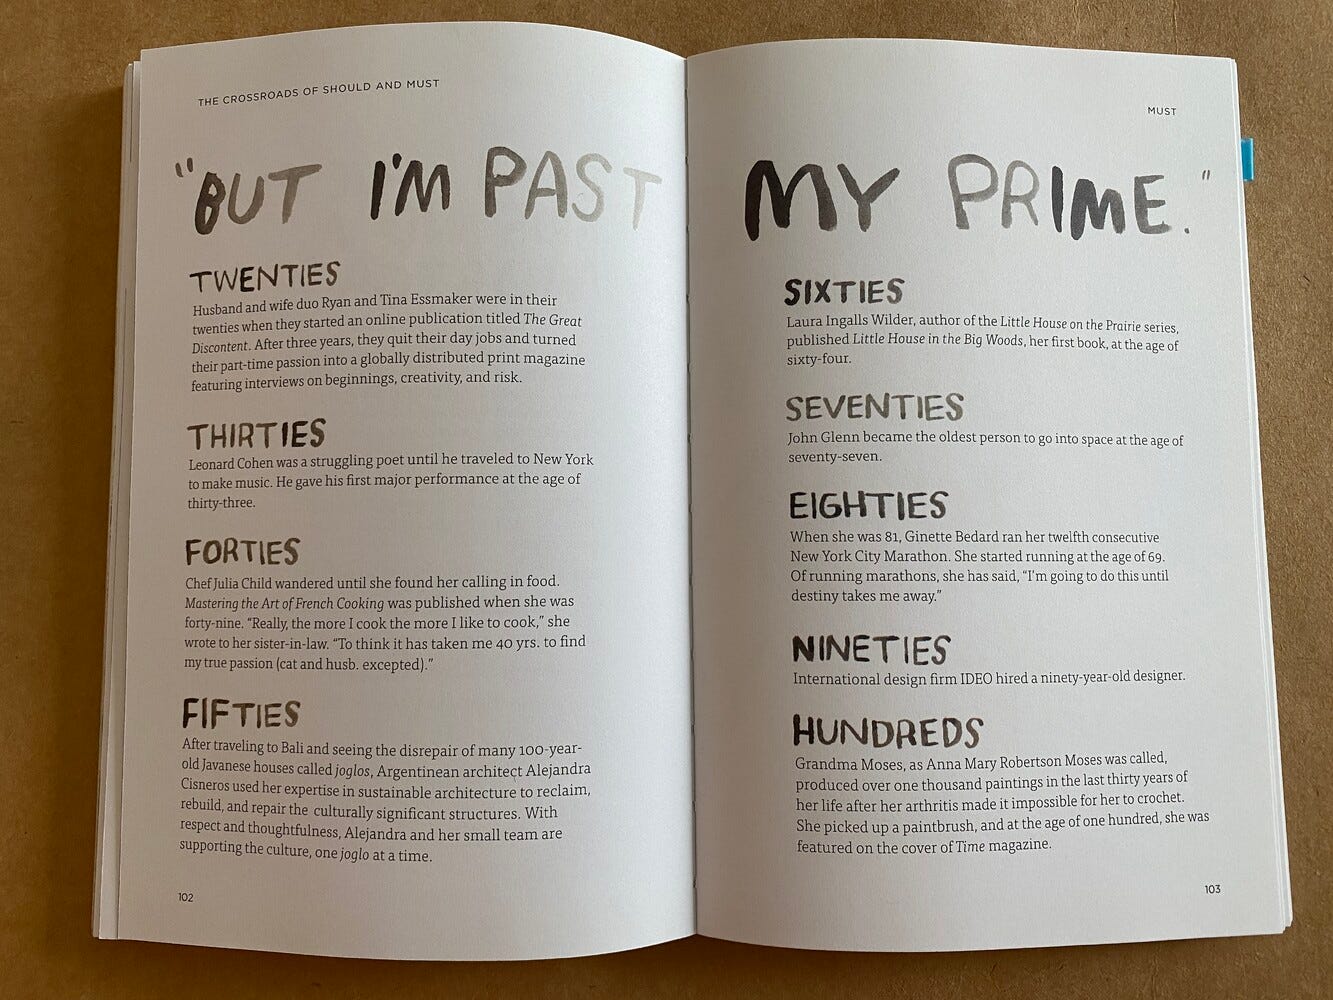 THE CROSSROADS OF SHOULD AND MUST
"BUT I'M PAST
TWENTIES
Husband and wife duo Ryan and Tina Essmaker were in their
twenties when they started an online publication titled The Great
Discontent. After three years, they quit their day jobs and turned
their part-time passion into a globally distributed print magazine
featuring interviews on beginnings, creativity, and risk.
THIRTIES
Leonard Cohen was a struggling poet until he traveled to New York
to make music. He gave his first major performance at the age of
thirty-three.
FORTIES
Chef Julia Child wandered until she found her calling in food.
Mastering the Art of French Cooking was published when she was
forty-nine. “Really, the more I cook the more I like to cook,” she
wrote to her sister-in-law. “To think it has taken me 40 yrs. to find
my true passion (cat and husb. excepted).”
FIFTIES
After traveling to Bali and seeing the disrepair of many 100-year-
old Javanese houses called joglos, Argentinean architect Alejandra
Cisneros used her expertise in sustainable architecture to reclaim,
rebuild, and repair the culturally significant structures. With
respect and thoughtfulness, Alejandra and her small team are
supporting the culture, one joglo at a time.
102
MUST
MY PRIME."
SIXTIES
Laura Ingalls Wilder, author of the Little House on the Prairie series,
published Little House in the Big Woods, her first book, at the age of
sixty-four.
SEVENTIES
John Glenn became the oldest person to go into space at the age of
seventy-seven.
EIGHTIES
When she was 81, Ginette Bedard ran her twelfth consecutive
New York City Marathon. She started running at the age of 69.
Of running marathons, she has said, “I'm going to do this until
destiny takes me away.”
NINETIES
International design firm IDEO hired a ninety-year-old designer.
HUNDREDS
Grandma Moses, as Anna Mary Robertson Moses was called,
produced over one thousand paintings in the last thirty years of
her life after her arthritis made it impossible for her to crochet.
She picked up a paintbrush, and at the age of one hundred, she was
featured on the cover of Time magazine.
103